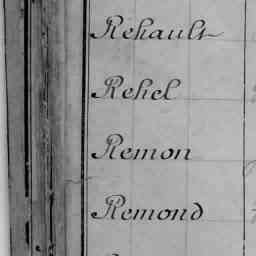 Rehault
Rehel
Remon
Remond